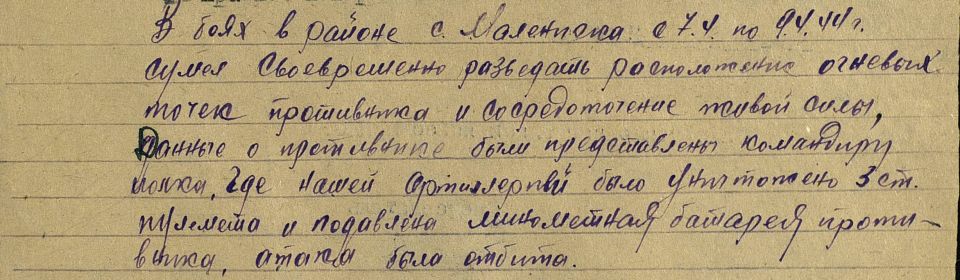 В боях в районе с. Маленивка с 7.4. по 9.4.44 г.
сумел своевременно разведать расположение огневых
точек противника и сосредоточение живой силы,
Данные о противнике были представлены командиру
полка, где нашей Артиллерией было уничтожено 3 ст.
пулемета и подавлена минометная батарея проти-
вника, атака была отбита.